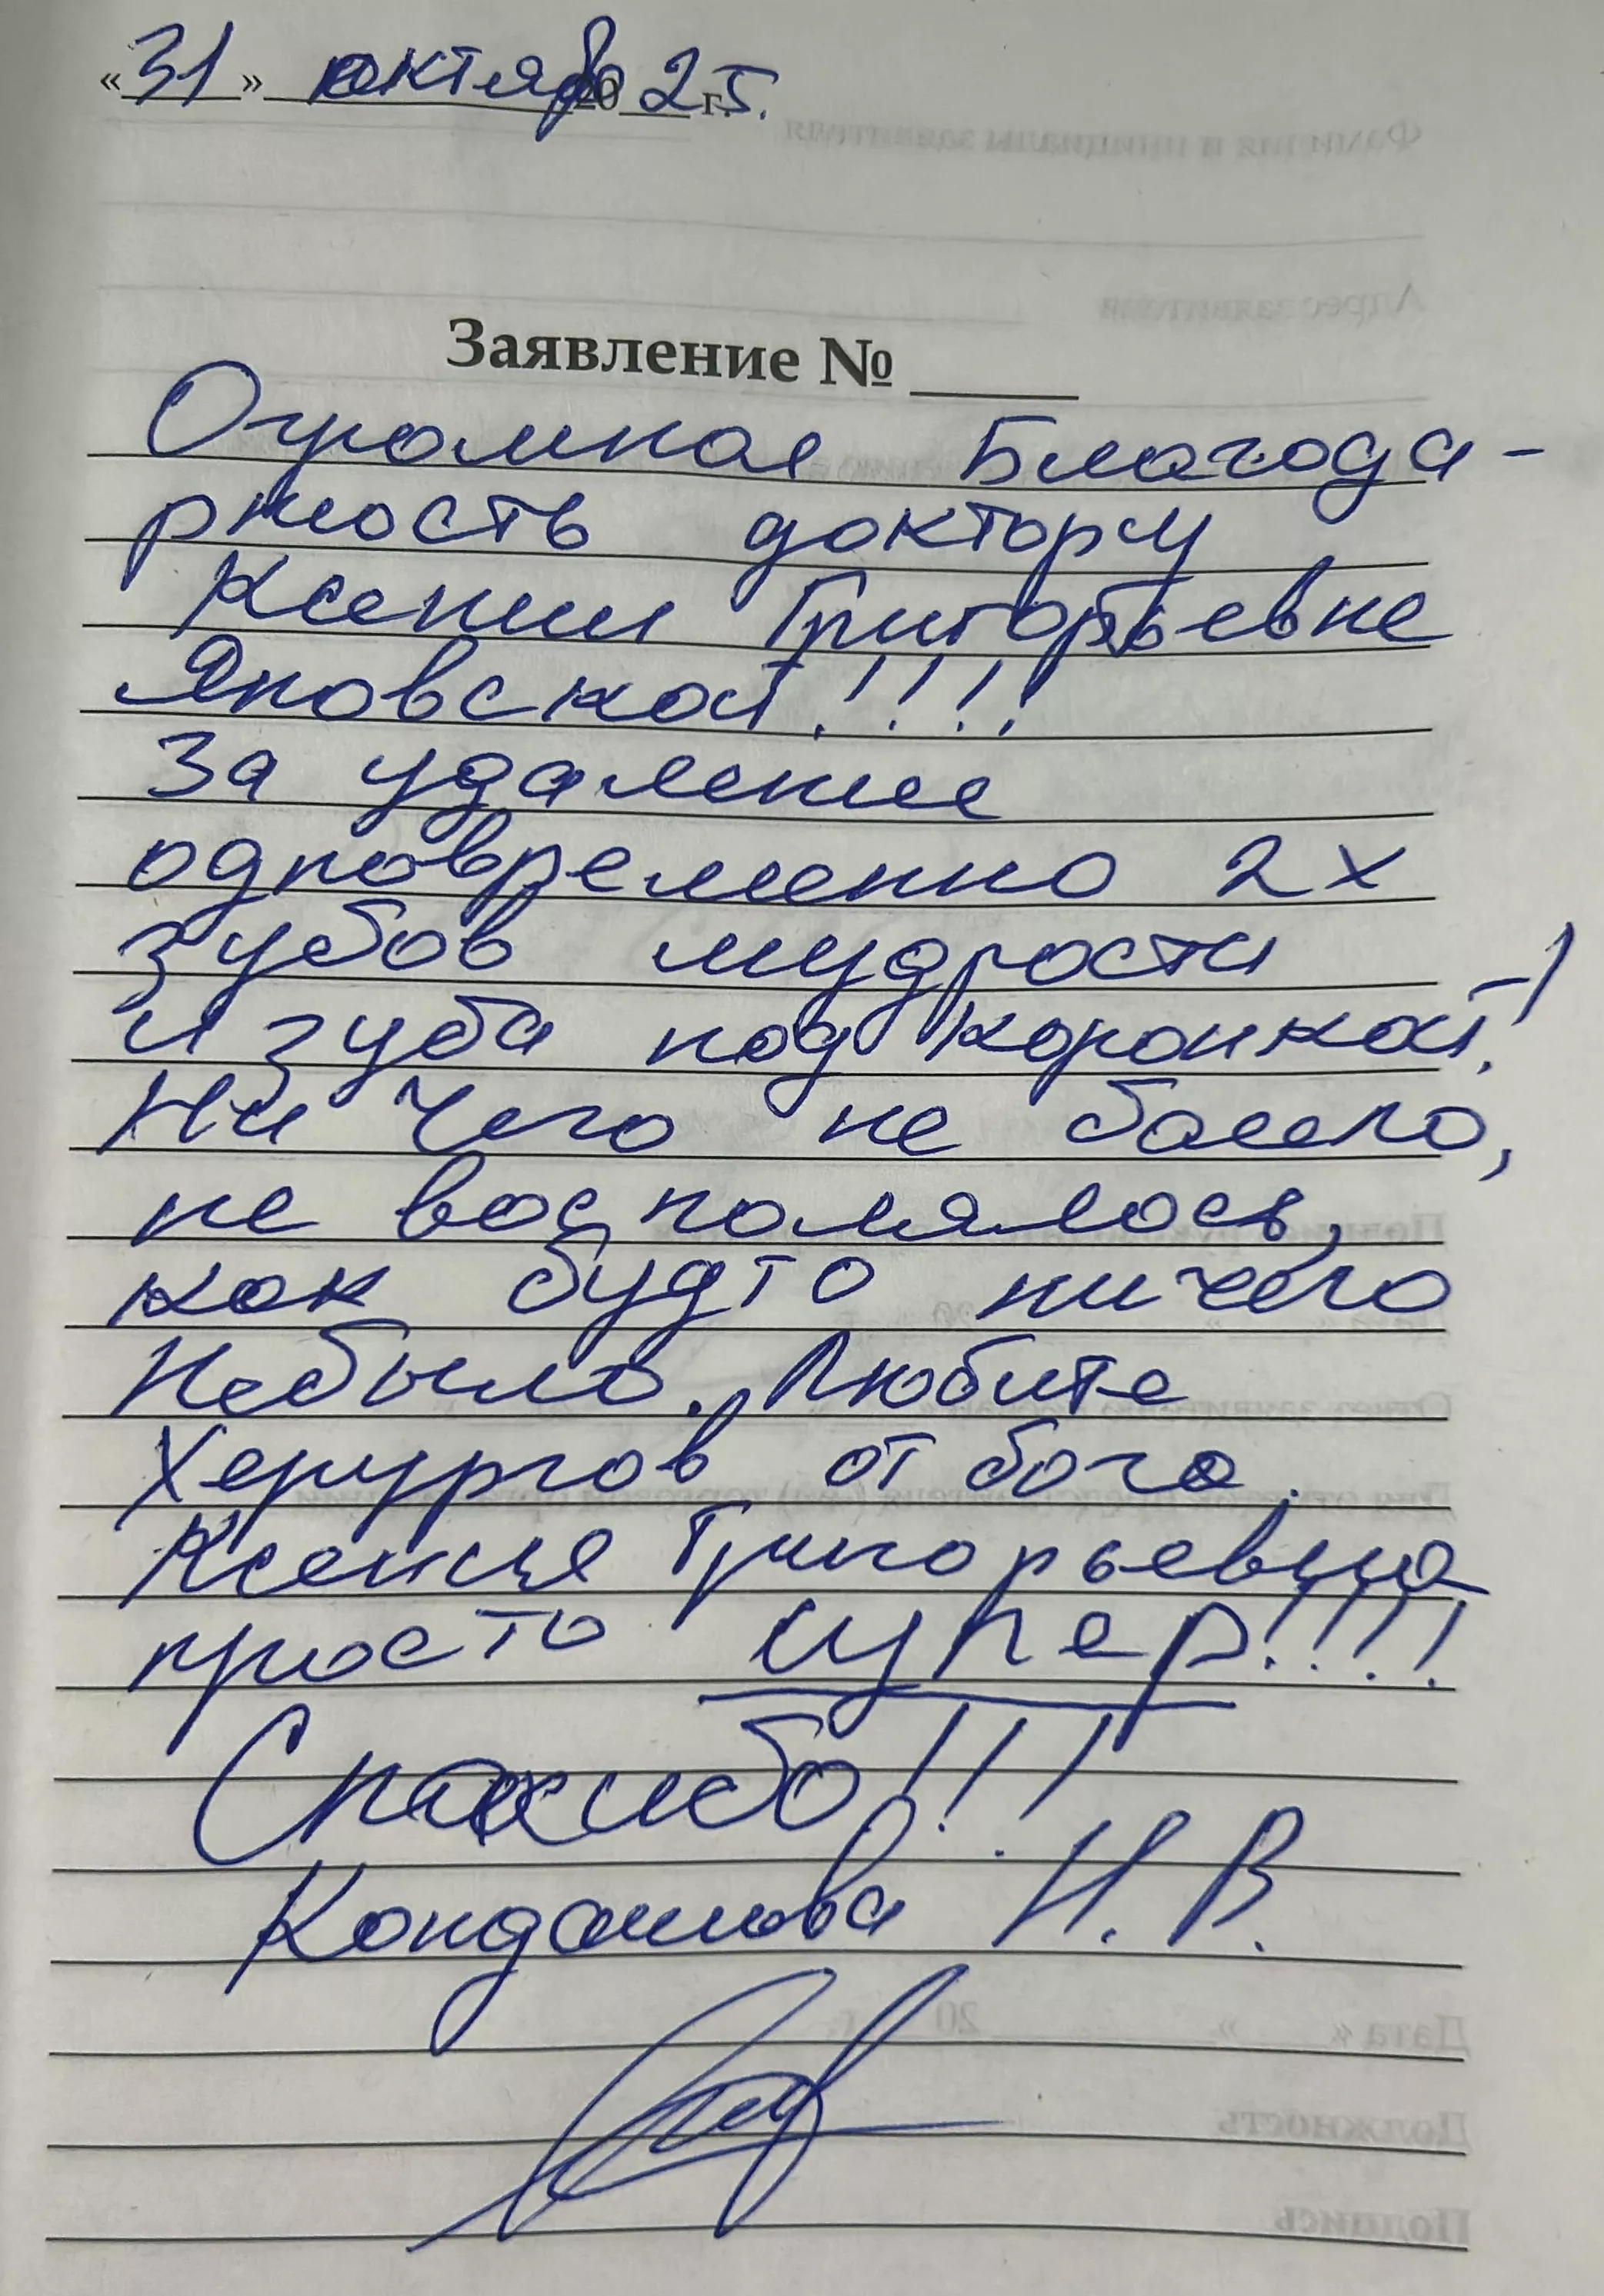 «31» октябр 2025 г.
Заявление №
Огромная Благода-
рность доктору
Ксении Григорьевне
Яновской!!!!
За удаление
одновременно 2х
зубов мудрости
и зуба под коронкой!
Ни чего не болело,
не воспомялось,
как будто ничего
Небыло. Любите
Херургов от бога.
Ксения Григорьевна
просто супер!!!!
Спасибо!!!
Кондашова Н. В.